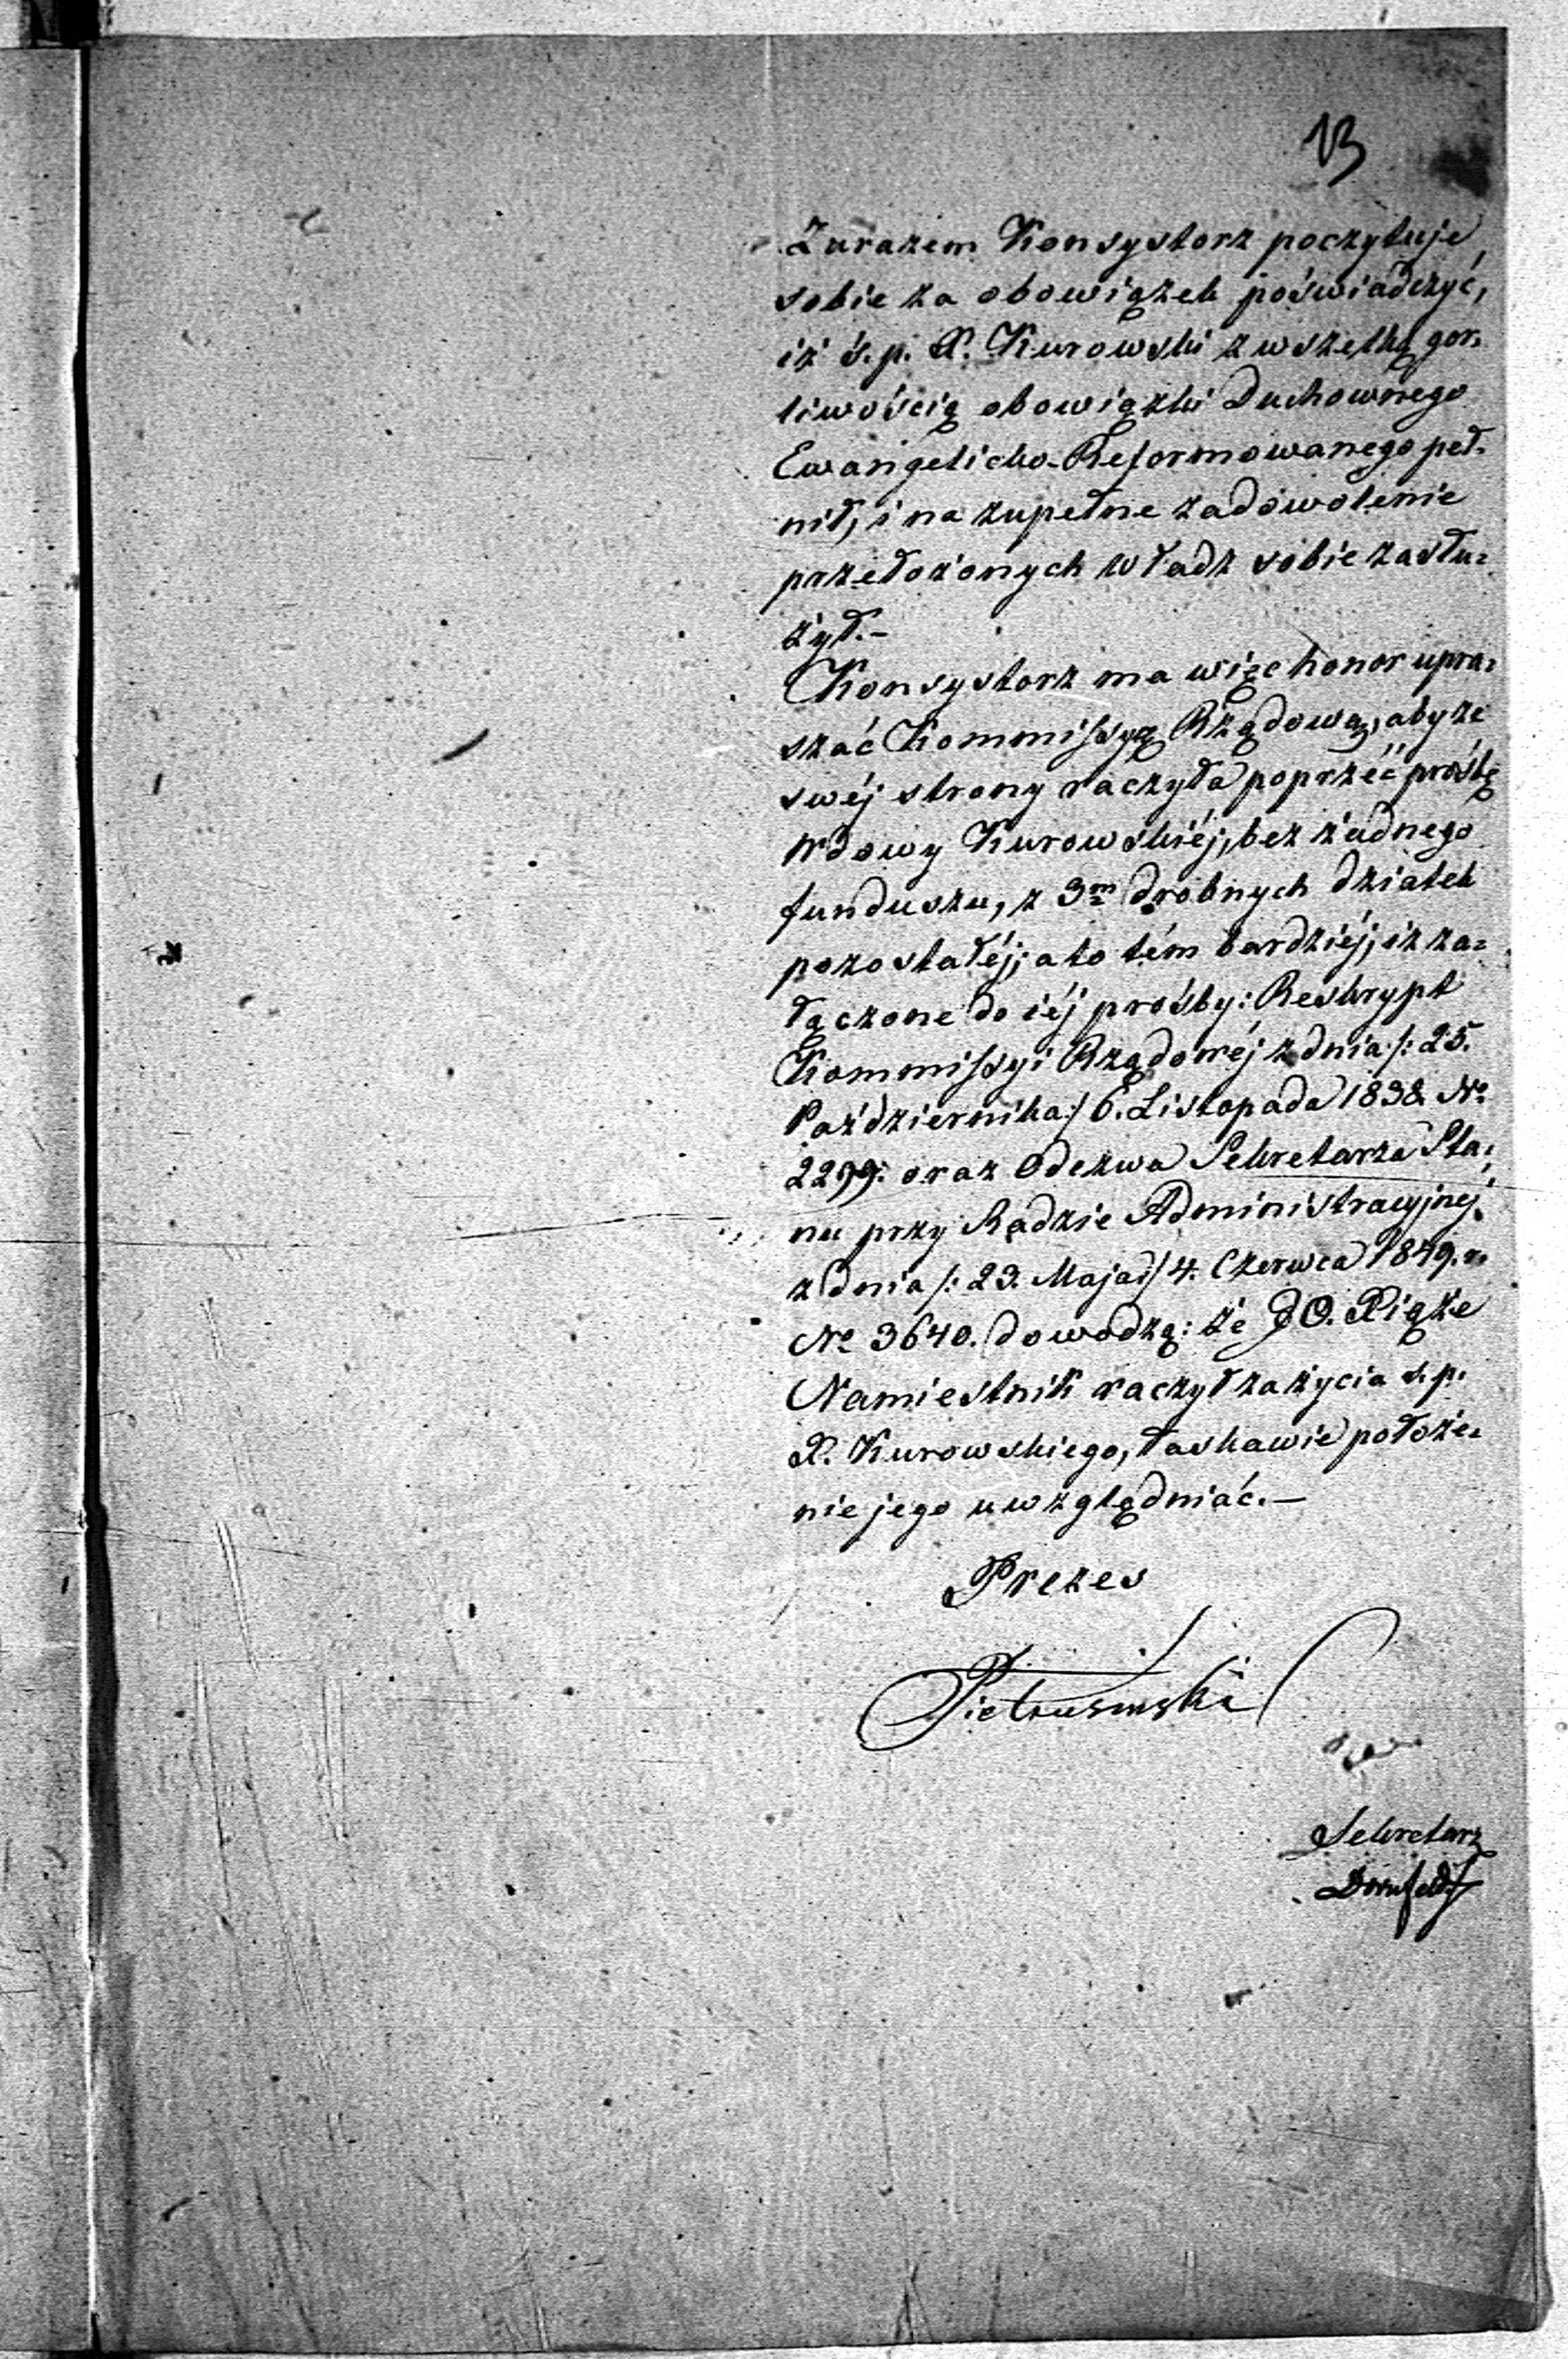 13
Zarazem Konsystorz poczytuje
sobie za obowiązek poświadczyć,
iż ś. p. X. Kurowski z wszelką gor-
liwością obowiązki Duchownego
Ewangelicko-Reformowanego peł-
nił, i na zupełne zadowolenie
przełożonych Władz sobie zasłu-
żył.-
Konsystorz ma więc honor upra-
szać Kommissyą Rządową, aby ze
swéj strony raczyła poprzéć prośbę
Wdowy Kurowskiéj, bez żadnego
funduszu, z 3m drobnych dziatek
pozostałéj; a to tém bardziéj, iż za-
łączone do iéj prośby: Reskrypt
Kommissyi Rządowéj z dnia /: 25.
Października :/ 6. Listopada 1838. No
2299: oraz Odezwa Sekretarza Sta-
nu przy Radzie Administracyjnéj
z dnia /: 23. Maja :/ 4. Czerwca 1849. r.
No 3640. dowodzą: że JO. Xiąże
Namiestnik raczył za życia ś. p.
X. Kurowskiego, łaskawie położe-
nie jego uwzględniać.—
Prezes
Pietrusiński
Sekretarz
Dornfeld